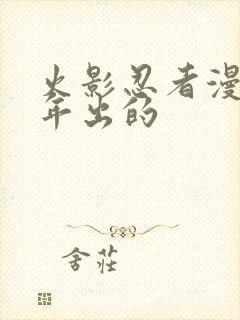 火影忍者漫
年出的
舍莊